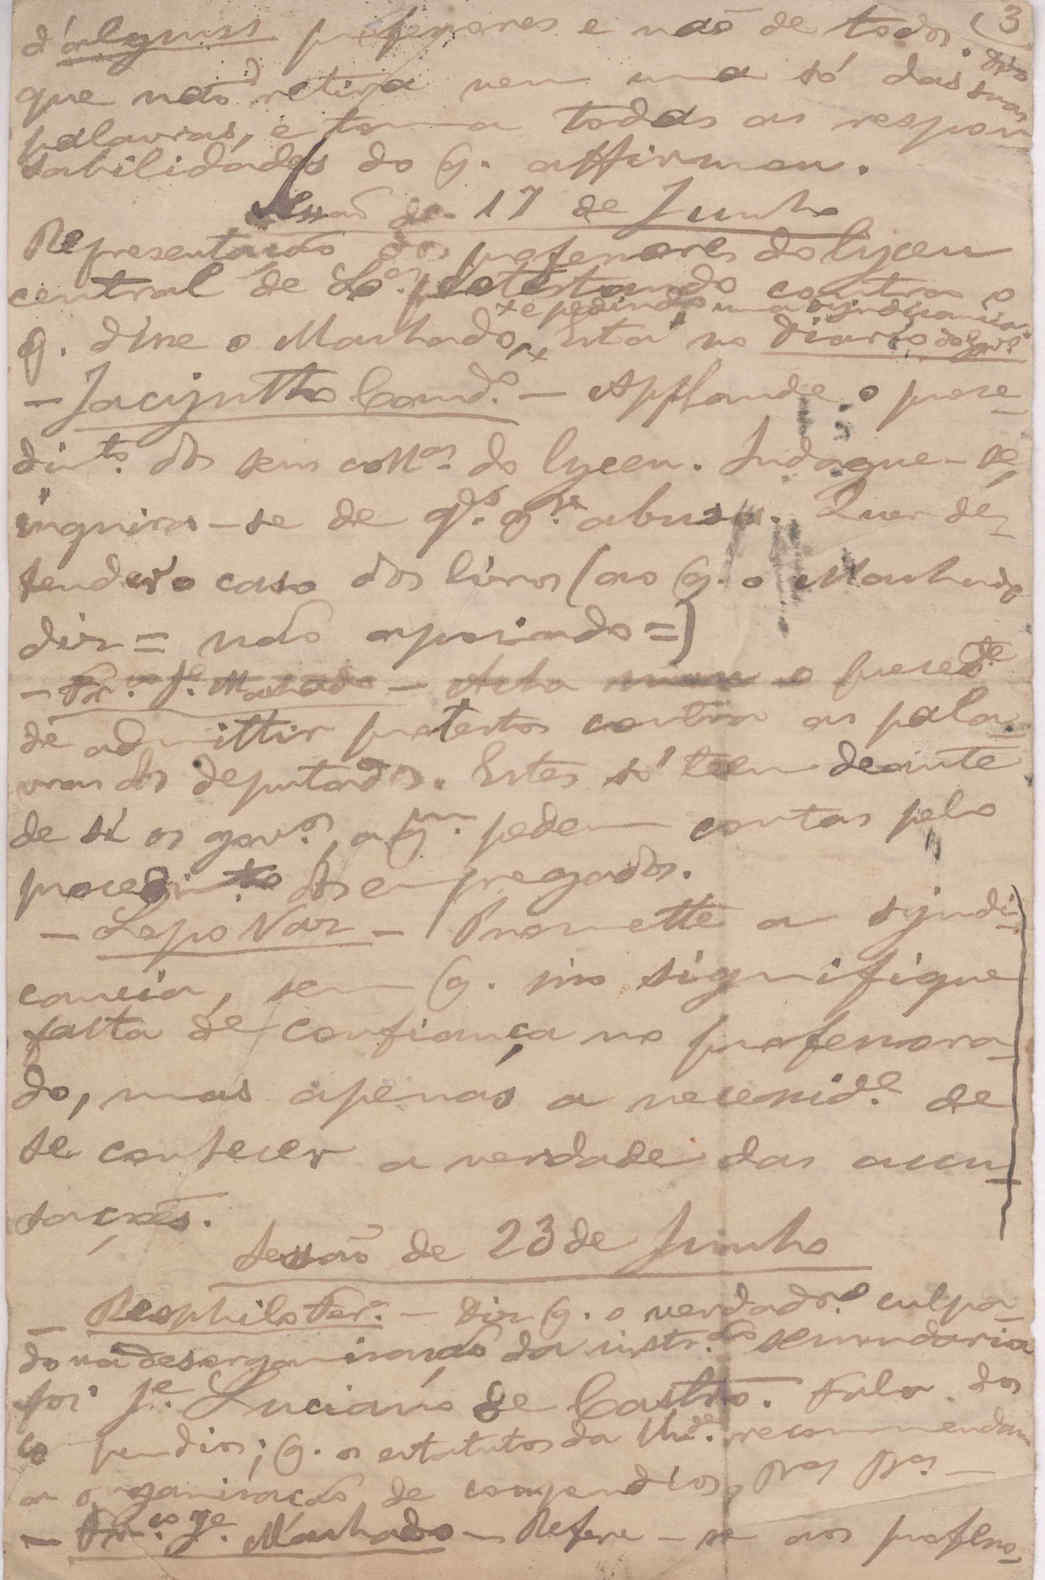 3
d'alguns professores e não de todos. Diz
que não retira nem uma só das suas
palavras, e toma todas as respon
sabilidades do q. affirmou.
Sessão de 17 de Junho
Representação dos professores do lyceu
central de Lx.ª protestando contra o
+ e pedindo uma syndicancia.
q. disse o Machado + Está no Diario do Gov.º
- Jacyntho Cand.º - Applaude o proce-
dim.to dos seus coll.as do lyceu. Indague-se,
inquira-se de q.do q.r abuso. Quer de-
fender o caso dos livros (ao q. o Machado
diz = não apoiado =)
- Fr.co J.e Machado - Acha mau o preced.te
de admittir protestos contra as pala-
vras dos deputados. Estes só teem deante
de si os gov.os, a q.m pedem contas pelo
procedimento dos empregados.
- Lopo Vaz - Promette a syndi-
cancia, sem q. isso signifique
falta de confiança no professora-
do, mas apenas a necessid.e de
se conhecer a verdade das accu-
sações.
Sessão de 23 de Junho
- Theophilo Fer.ª - Diz q. o verdad.o culpa-
do na desorganisação da instr.ção secundaria
foi J.e Luciano de Castro. Fala dos
compendios; q. os estatutos da Un.de recommendam
a organisação de compendios,
- Fr.co J.e Machado - Refere-se aos profess-